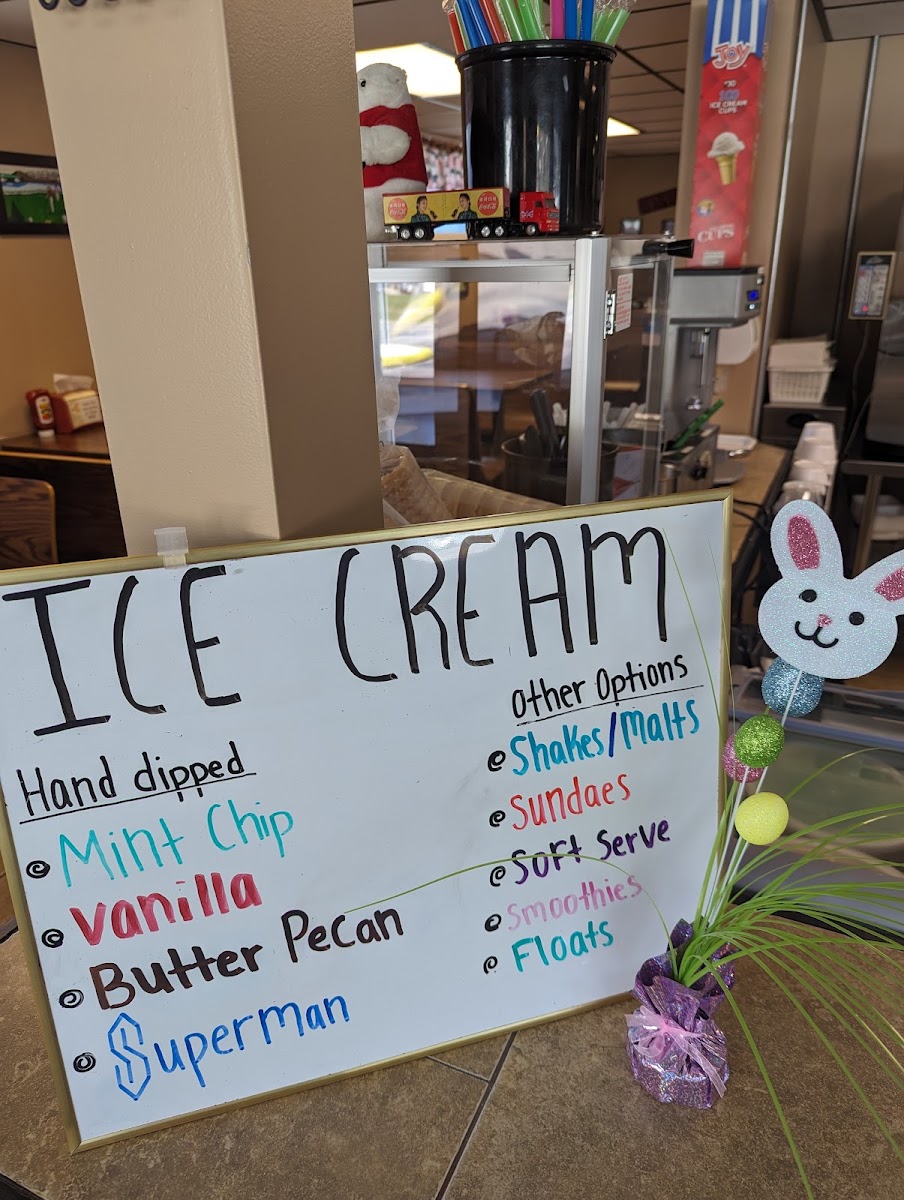 JOY
100
ICE CREAM
CUPS
CUPS
ICE CREAM
Hand dipped
Mint Chip
Vanilla
Butter Pecan
Superman
Other Options
Shakes/Malts
Sundaes
Soft Serve
Smoothies
Floats